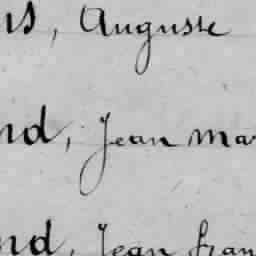 is, Auguste
nd, Jean Mar
nd, Jean fran